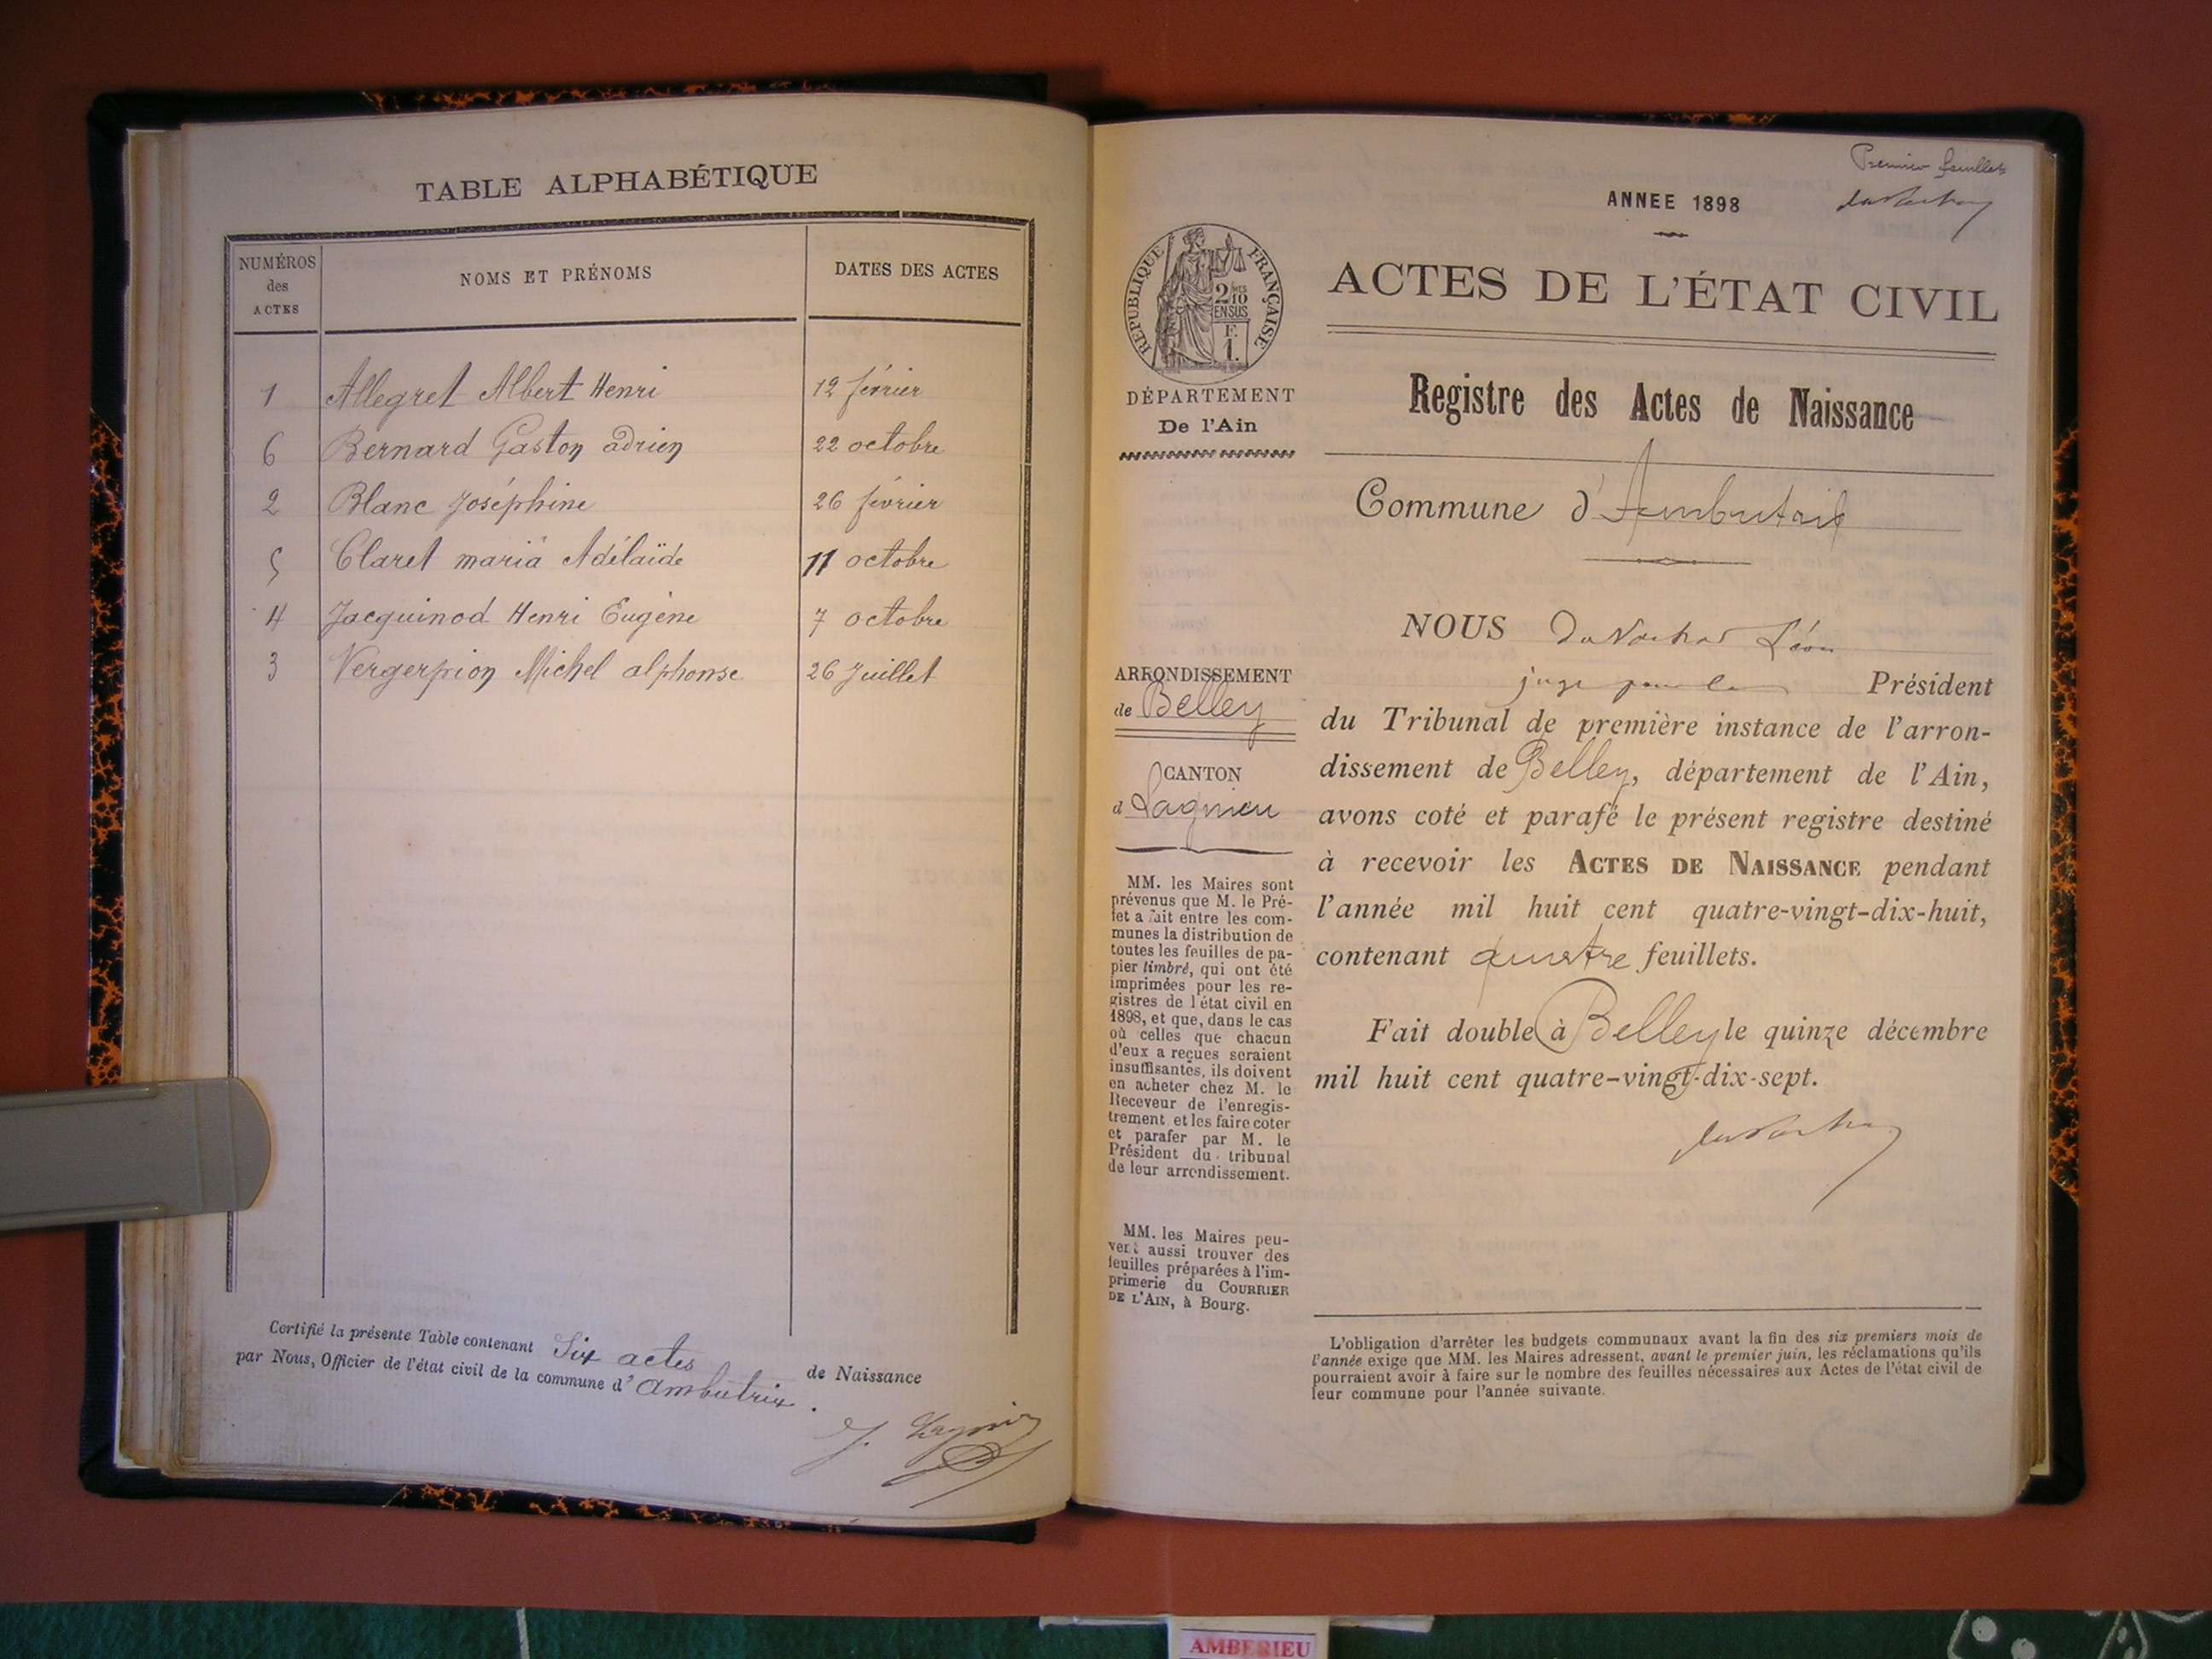 TABLE ALPHABÉTIQUE
NUMÉROS des ACTES
NOMS ET PRÉNOMS
DATES DES ACTES
1 Allegret Albert Henri 12 février
6 Bernard Gaston adrien 22 octobre
2 Blanc Joséphine 26 février
5 Claret maria Adélaïde 11 octobre
4 Jacquinod Henri Eugène 7 octobre
3 Vergerpion Michel alphonse 26 Juillet
Certifié la présente Table contenant Six actes de Naissance
par Nous, Officier de l'état civil de la commune d'ambutrix.
Premier feuillet
ANNEE 1898
RÉPUBLIQUE FRANÇAISE
2/10 EN SUS
F. 1.
ACTES DE L'ÉTAT CIVIL
DÉPARTEMENT
De l'Ain
Registre des Actes de Naissance
Commune d'Ambutrix
ARRONDISSEMENT
de Belley
CANTON
d Lagnieu
MM. les Maires sont
prévenus que M. le Pré-
fet a fait entre les com-
munes la distribution de
toutes les feuilles de pa-
pier timbré, qui ont été
imprimées pour les re-
gistres de l'état civil en
1898, et que, dans le cas
où celles que chacun
d'eux a reçues seraient
insuffisantes, ils doivent
en acheter chez M. le
Receveur de l'enregis-
trement et les faire coter
et parafer par M. le
Président du tribunal
de leur arrondissement.
MM. les Maires peu-
vent aussi trouver des
feuilles préparées à l'im-
primerie du COURRIER
DE L'AIN, à Bourg.
NOUS Léon
juge pour le Président
du Tribunal de première instance de l'arron-
dissement de Belley, département de l'Ain,
avons coté et parafé le présent registre destiné
à recevoir les ACTES DE NAISSANCE pendant
l'année mil huit cent quatre-vingt-dix-huit,
contenant quatre feuillets.
Fait double à Belley le quinze décembre
mil huit cent quatre-vingt-dix-sept.
L'obligation d'arrêter les budgets communaux avant la fin des six premiers mois de
l'année exige que MM. les Maires adressent, avant le premier juin, les réclamations qu'ils
pourraient avoir à faire sur le nombre des feuilles nécessaires aux Actes de l'état civil de
leur commune pour l'année suivante.
AMBERIEU